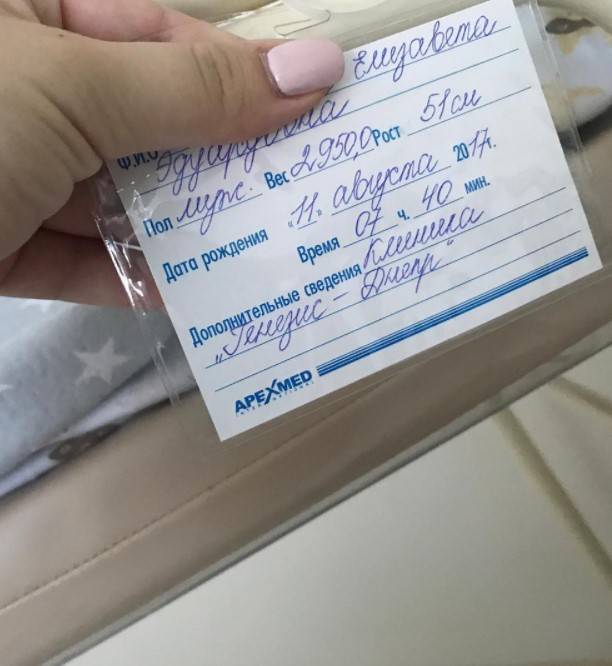 Елизавета
Ф.И.О. Эдуардовна
Пол муж. Вес 2950,0 Рост 51 см
Дата рождения "11" августа 2017г.
Время 07 ч. 40 мин.
Дополнительные сведения Клиника
"Генезис – Днепр"
APEXMED
INTERNATIONAL